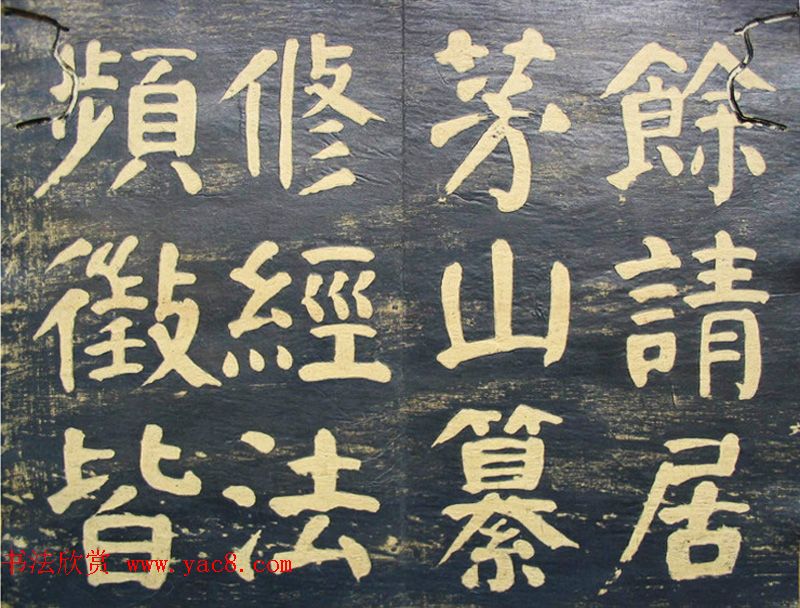 餘請居
茅山纂
修經法
頻徵皆
书法欣赏 www.yac8.com